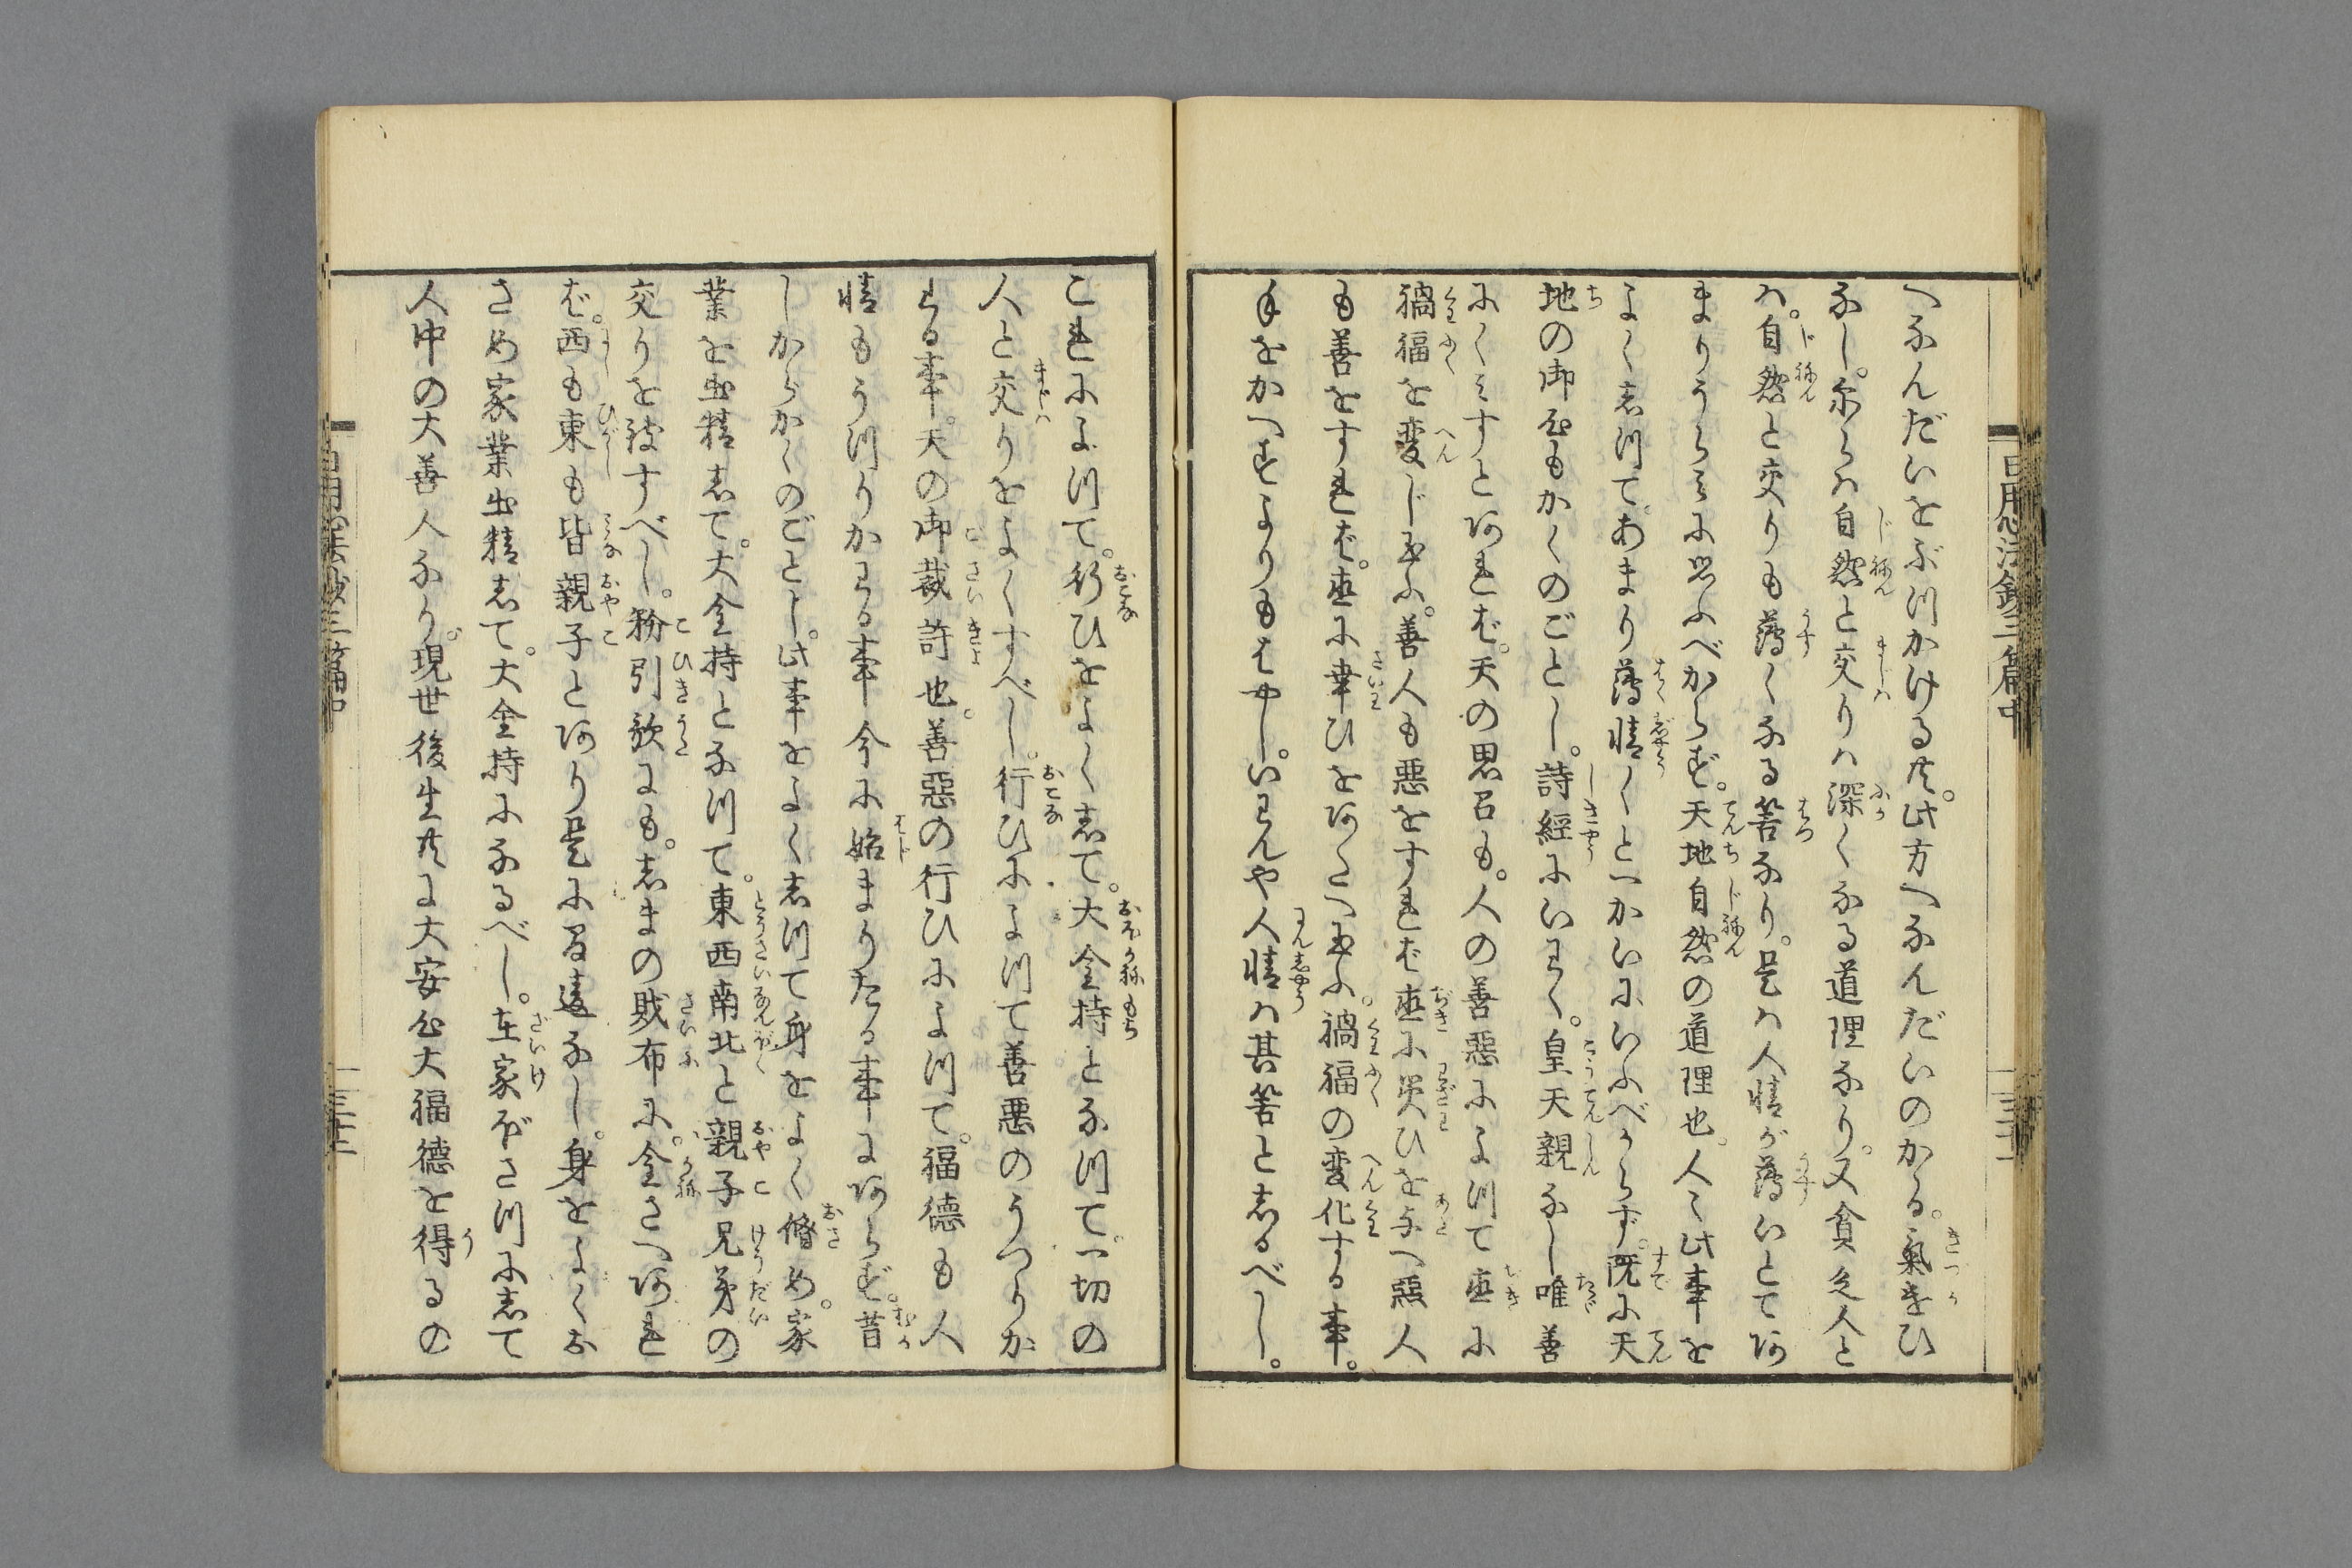 へなんだいをぶつかける共。此方へなんだいのかゝる。氣遣ひ
なし。尓らバ自然と交りハ深くなる道理なり。又貧乏人と
ハ。自然と交りも薄くなる筈なり。是ハ人情が薄いとてあ
まりうらミに思ふべからず。天地自然の道理也。人々此事を
よく志つて。あまり薄情〱とつかいにいふべからず。既に天
地の御心もかくのごとし。詩經にいわく。皇天親なし唯善
にくミすとあれば。天の思召も。人の善惡によつて直に
禍福を変じ玉ふ。善人も惡をすれば直に災ひを与へ惡人
も善をすれば。直に幸ひをあたへ玉ふ。禍福の変化する事。
手をかへすよりもはやし。いわんや人情ハ其筈と志るべし。
これによつて。行ひをよく志て。大金持となつて。一切の
人と交りをよくすべし。行ひによつて善悪のうつりか
わる事。天の御裁許也。善惡の行ひによつて。福徳も人
情もうつりかわる事今に始まりたる事にあらず。昔
しからかくのごとし。此事をよく志つて身をよく脩め。家
業を出精志て。大金持となつて。東西南北と親子兄弟の
交りを致すべし。粉引歌にも。志まの財布に。金さへあれ
ば。西も東も皆親子とあり是に間違なし。身をよくお
さめ家業出精志て。大金持になるべし。在家がさつに志て
人中の大善人なり。現世後生共に大安心大福徳を得るの
日用心法鈔三篇中
三十一
日用心法鈔三篇中